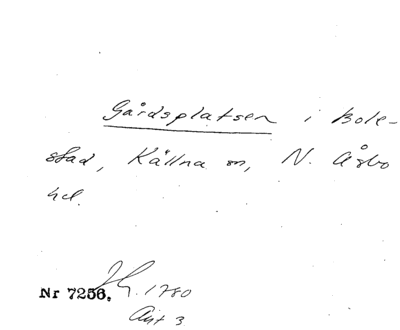 Gårdsplatsen i Bole-
stad, Källna sn, N. Åsbo
hd.
Nr 7256. 1780
Akt 3